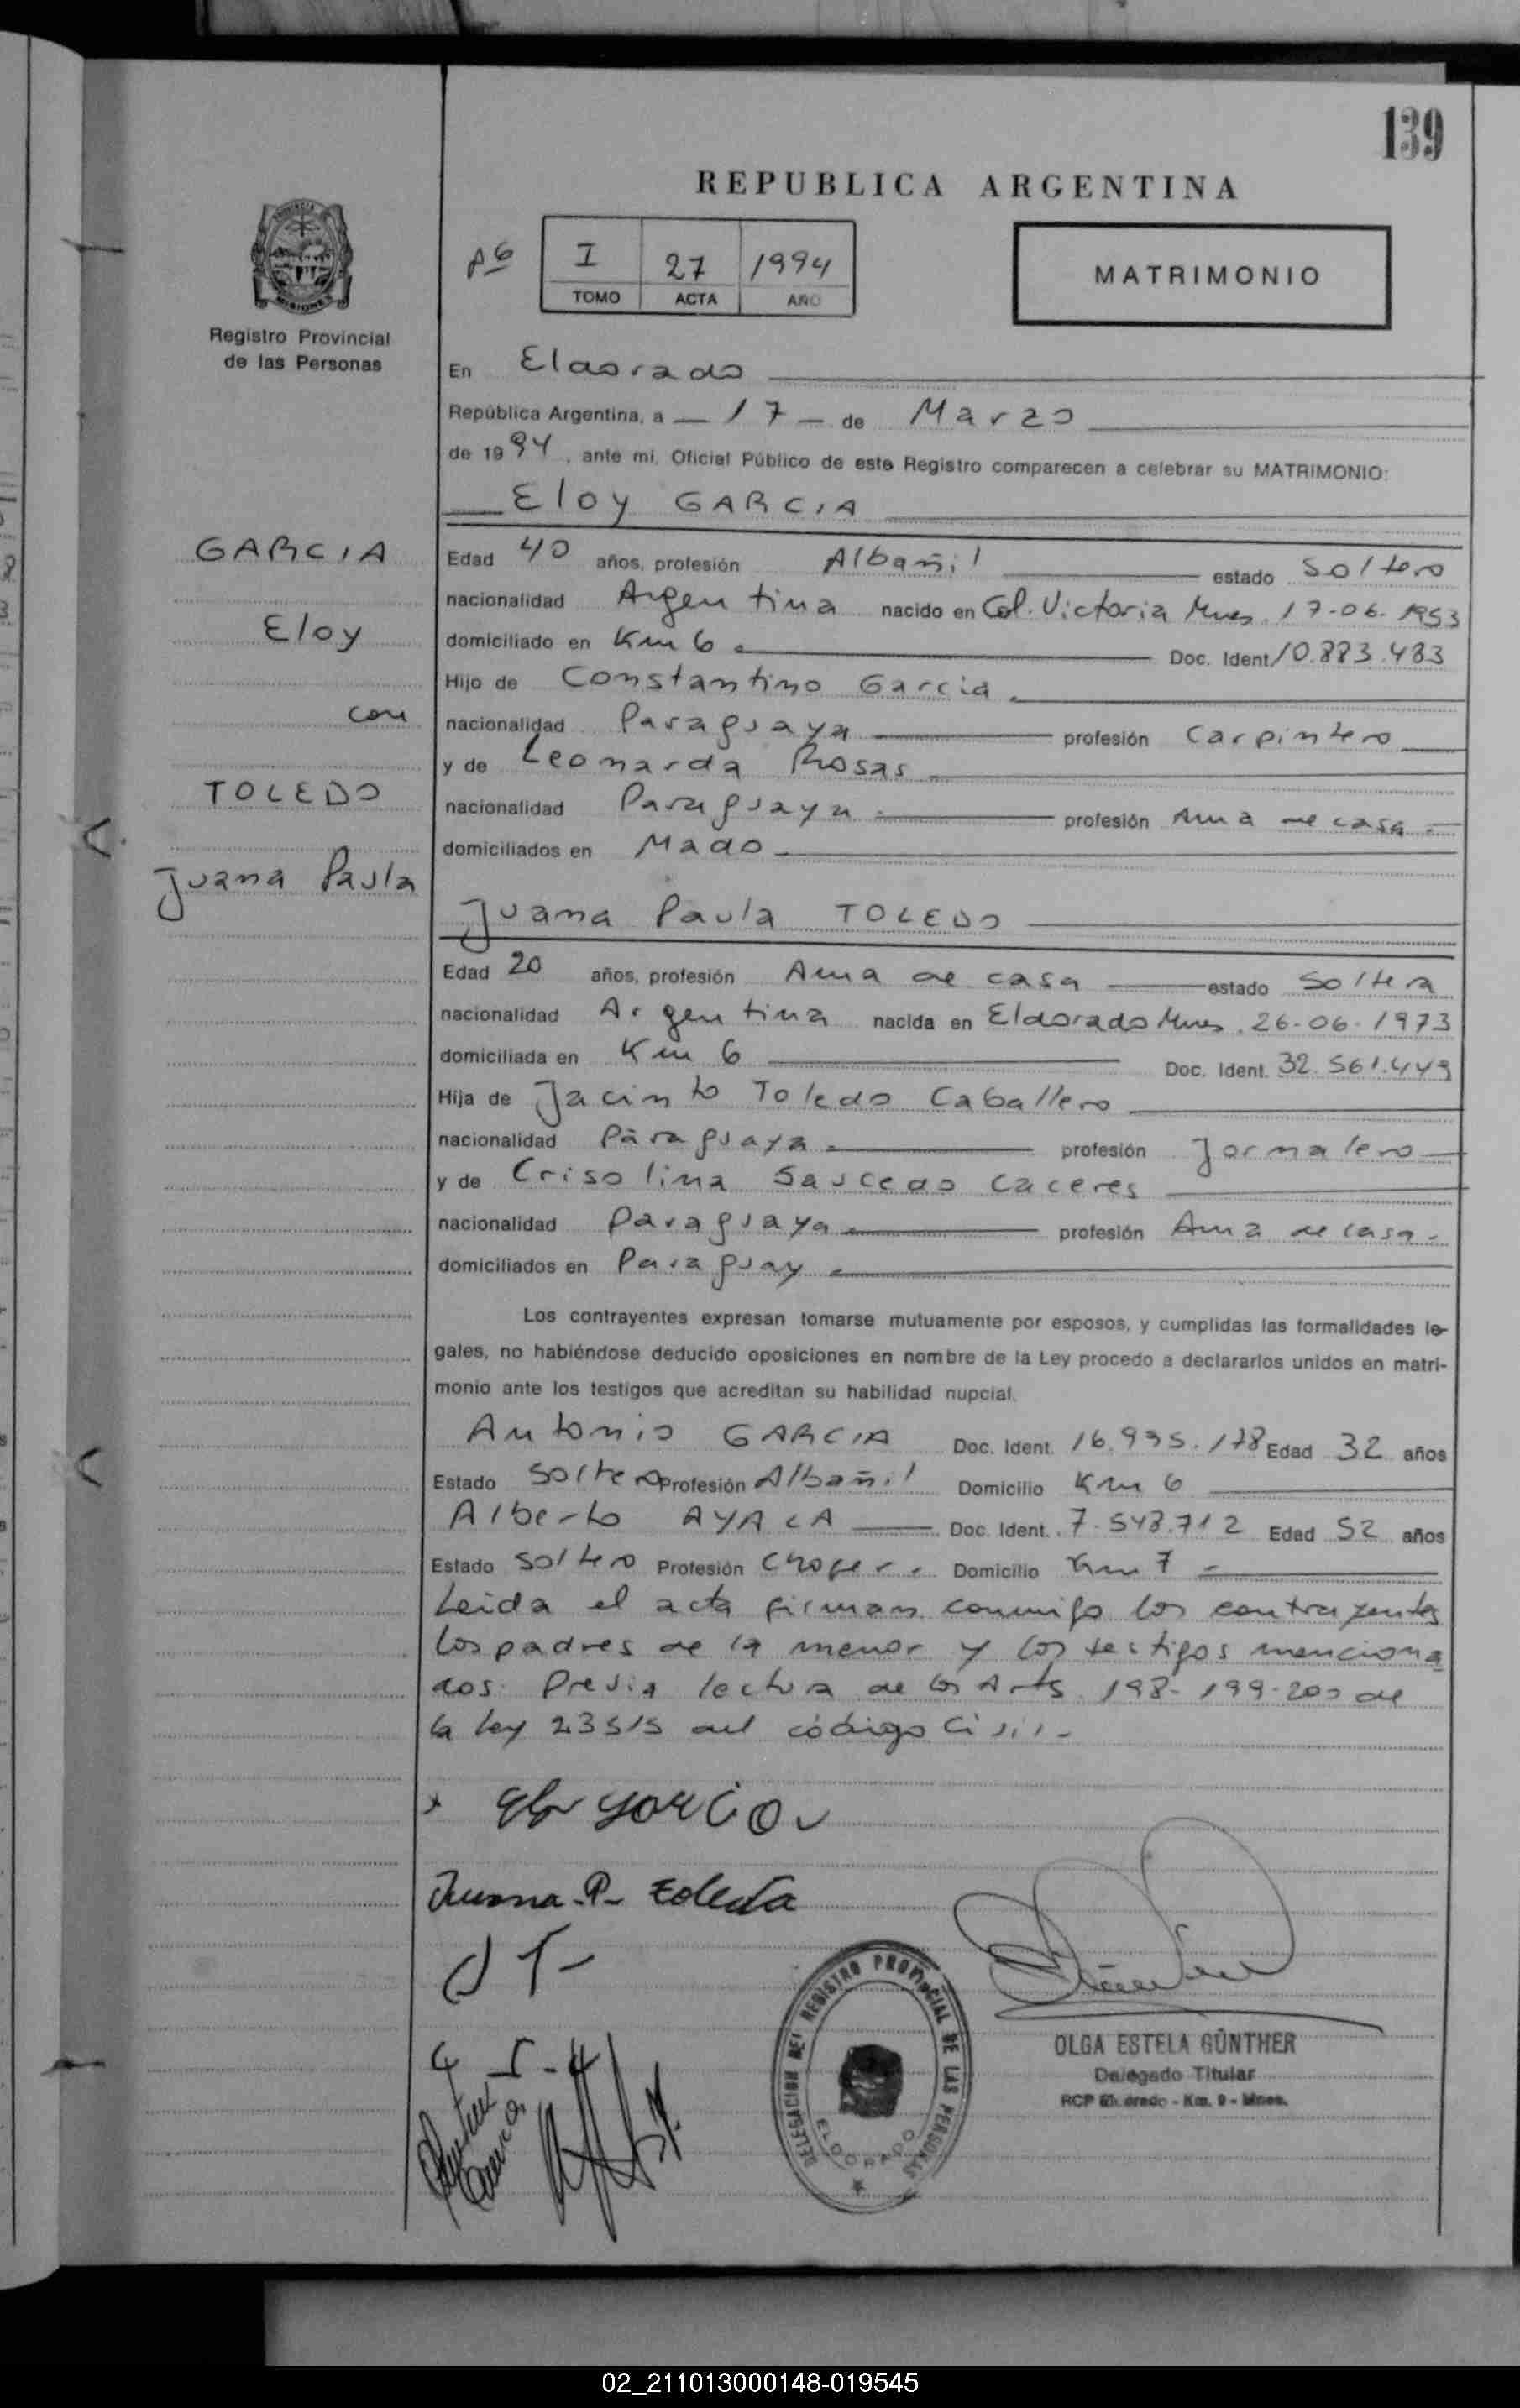 139
REPUBLICA ARGENTINA
I 27 1994
TOMO ACTA AÑO
MATRIMONIO
PROVINCIA
MISIONES
Registro Provincial
de las Personas
En Eldorado
República Argentina, a — 17 — de Marzo
de 1994, ante mi, Oficial Público de este Registro comparecen a celebrar su MATRIMONIO:
Eloy GARCIA
GARCIA
Eloy
con
TOLEDO
Juana Paula
Edad 40 años, profesión Albañil estado Soltero
nacionalidad Argentina nacido en Col. Victoria Mnes. 17-06-1953
domiciliado en Km 6 Doc. Ident. 10.883.483
Hijo de Constantino Garcia
nacionalidad Paraguaya profesión Carpintero
y de Leonarda Rosas
nacionalidad Paraguaya profesión Ama de casa
domiciliados en Mado
Juana Paula TOLEDO
Edad 20 años, profesión Ama de casa estado Soltera
nacionalidad Argentina nacida en Eldorado Mnes. 26-06-1973
domiciliada en Km 6 Doc. Ident. 32.561.449
Hija de Jacinto Toledo Caballero
nacionalidad Paraguaya profesión Jornalero
y de Crisolina Saucedo Caceres
nacionalidad Paraguaya profesión Ama de casa
domiciliados en Paraguay
Los contrayentes expresan tomarse mutuamente por esposos, y cumplidas las formalidades le-
gales, no habiéndose deducido oposiciones en nombre de la Ley procedo a declararlos unidos en matri-
monio ante los testigos que acreditan su habilidad nupcial.
Antonio GARCIA Doc. Ident. 16.995.178 Edad 32 años
Estado Soltero Profesión Albañil Domicilio Km 6
Alberto AYALA Doc. Ident. 7.548.712 Edad 52 años
Estado Soltero Profesión Chofer Domicilio Km 7
Leida el acta firman conmigo los contrayentes
los padres de la menor y los testigos menciona
dos. Previa lectura de los Arts. 198-199-200 de
la ley 23515 del código Civil-
Juana-P- Toledo
J T-
DELEGACION DEL REGISTRO PROVINCIAL DE LAS PERSONAS
ELDORADO
OLGA ESTELA GÜNTHER
Delegado Titular
RCP Eldorado - Km. 9 - Mnes.
02_211013000148-019545